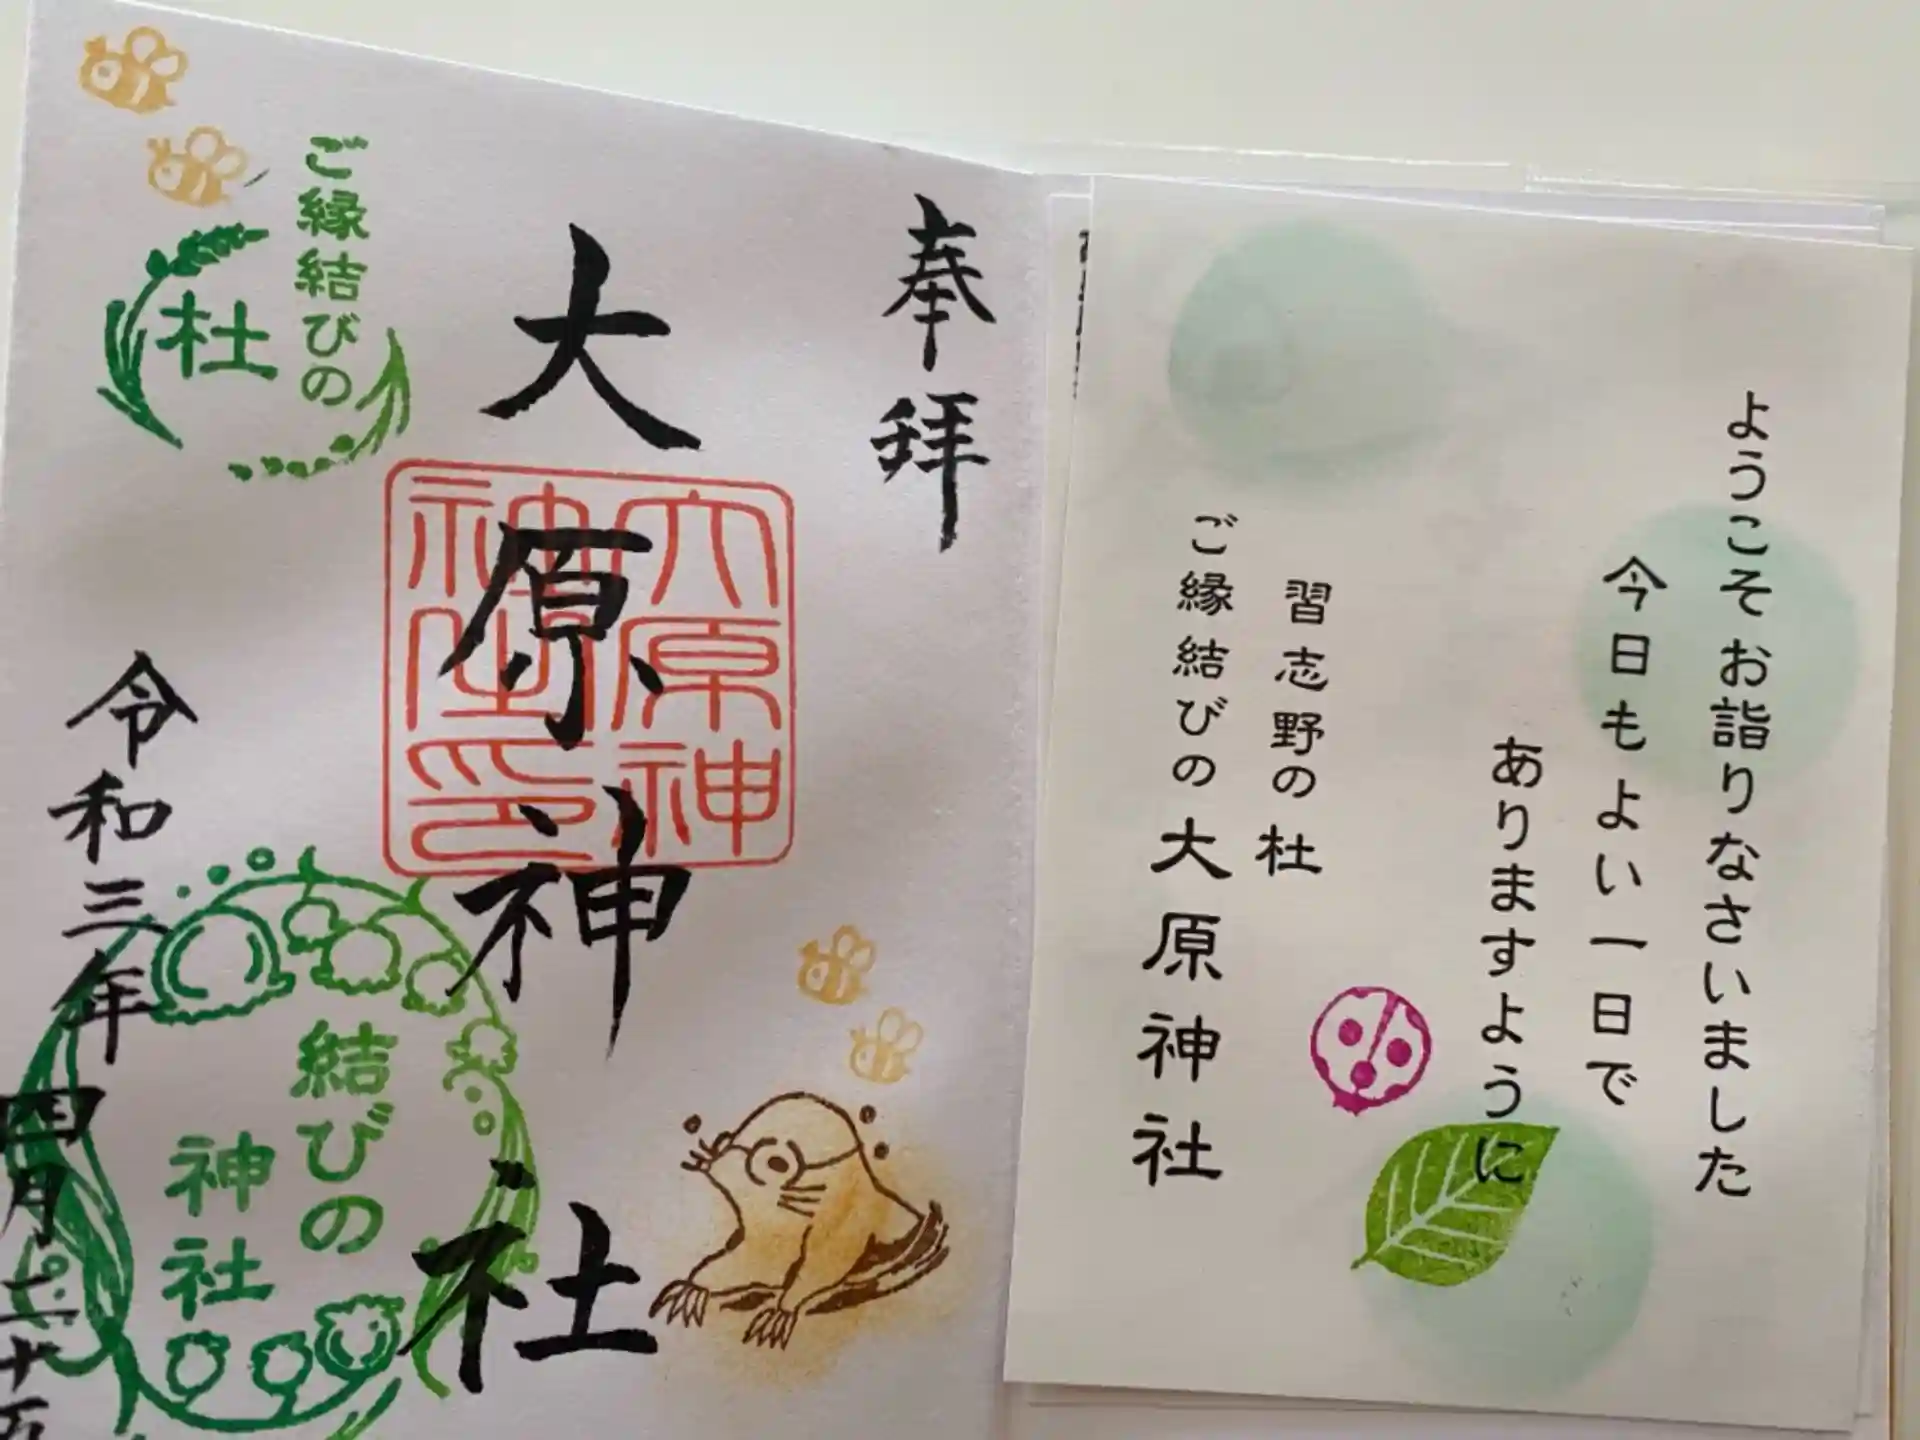 奉拝
大原神社
大原神
社神印
ご縁結びの
杜
結びの
神社
令和三年四月二十五
ようこそお詣りなさいました
今日もよい一日で
ありますように
習志野の杜
ご縁結びの大原神社